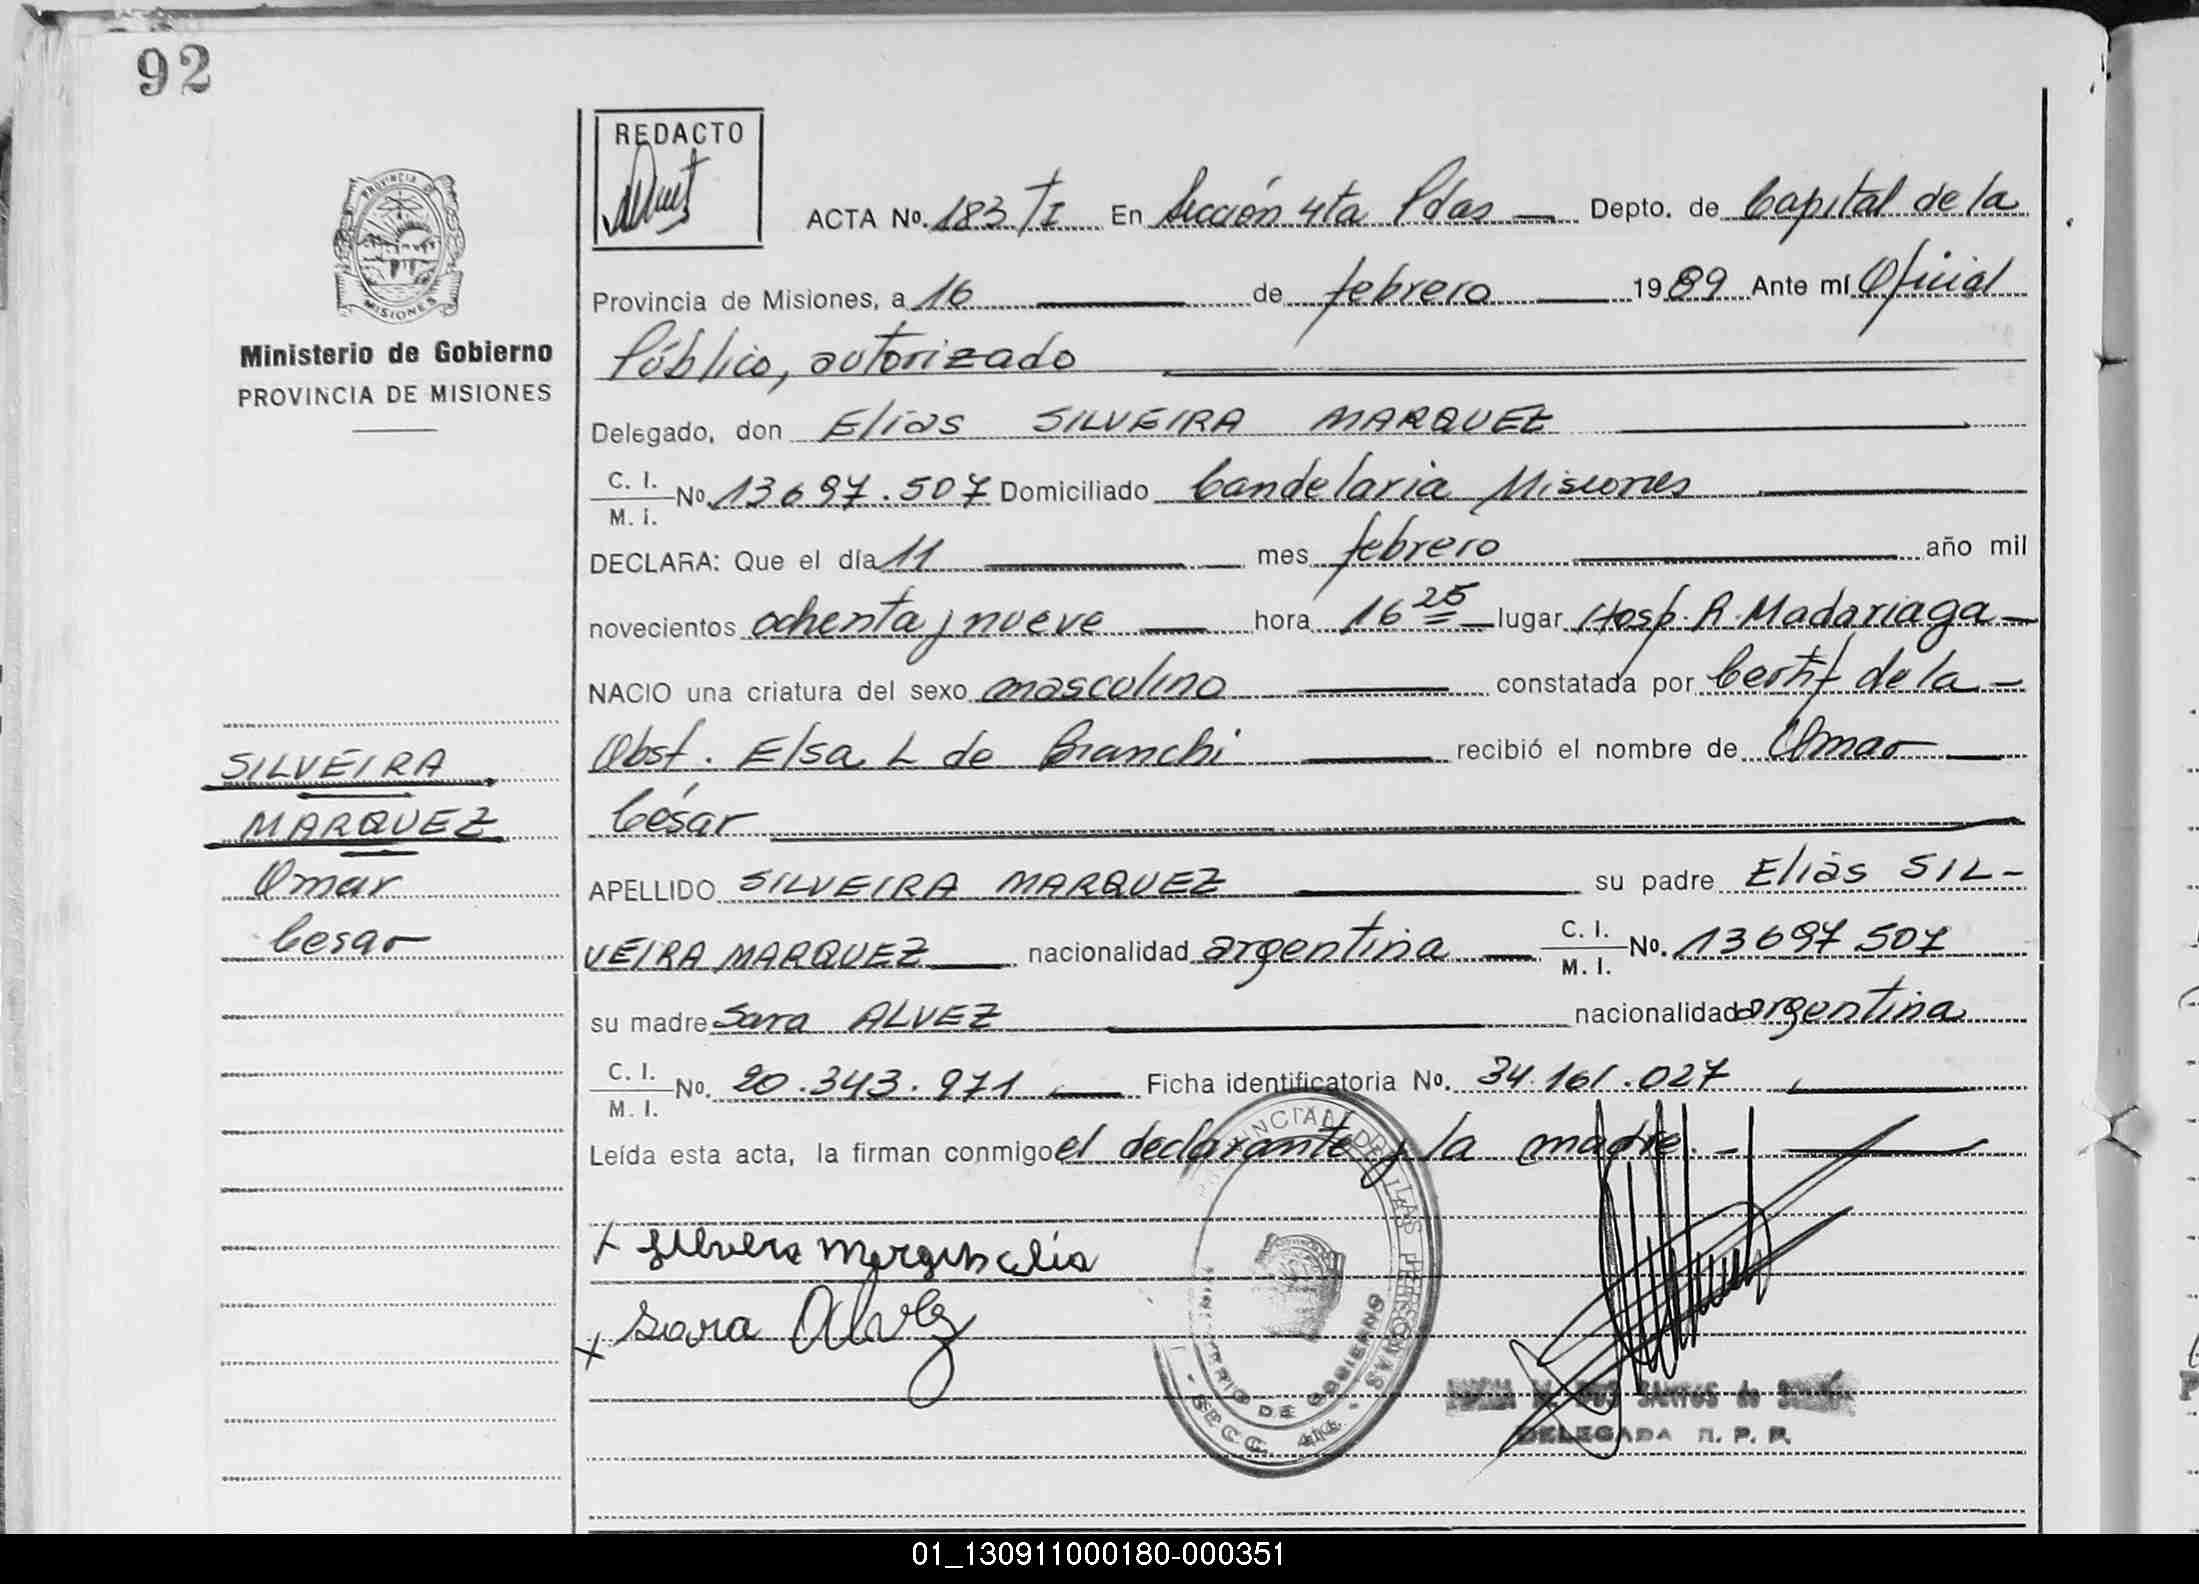 92
REDACTO
PROVINCIA D
MISIONES
Ministerio de Gobierno
PROVINCIA DE MISIONES
ACTA No. 183 TI En Sección 4ta Pdas Depto. de Capital de la
Provincia de Misiones, a 16 de febrero 1989 Ante mí Oficial
Público, autorizado
Delegado, don Elías SILVEIRA MARQUEZ
C. I.
M. I. No. 13.697.507 Domiciliado Candelaria Misiones
DECLARA: Que el día 11 mes febrero año mil
novecientos ochenta y nueve hora 16 25 lugar Hosp. R. Madariaga
NACIO una criatura del sexo masculino constatada por Certif de la
Obst. Elsa L de Branchi recibió el nombre de Omar
César
APELLIDO SILVEIRA MARQUEZ su padre Elías SIL-
VEIRA MARQUEZ nacionalidad argentina C. I.
M. I. No. 13697507
su madre Sara ALVEZ nacionalidad argentina
C. I.
M. I. No. 20.343.971 Ficha identificatoria No. 34.161.027
Leída esta acta, la firman conmigo el declarante y la madre.-
SILVEIRA
MARQUEZ
Omar
Cesar
Sara Alvez
DE LAS PERSONAS
DE GOBIERNO
SECC. 4ta
DOS SANTOS de
DELEGADA R. P. P.
01_130911000180-000351